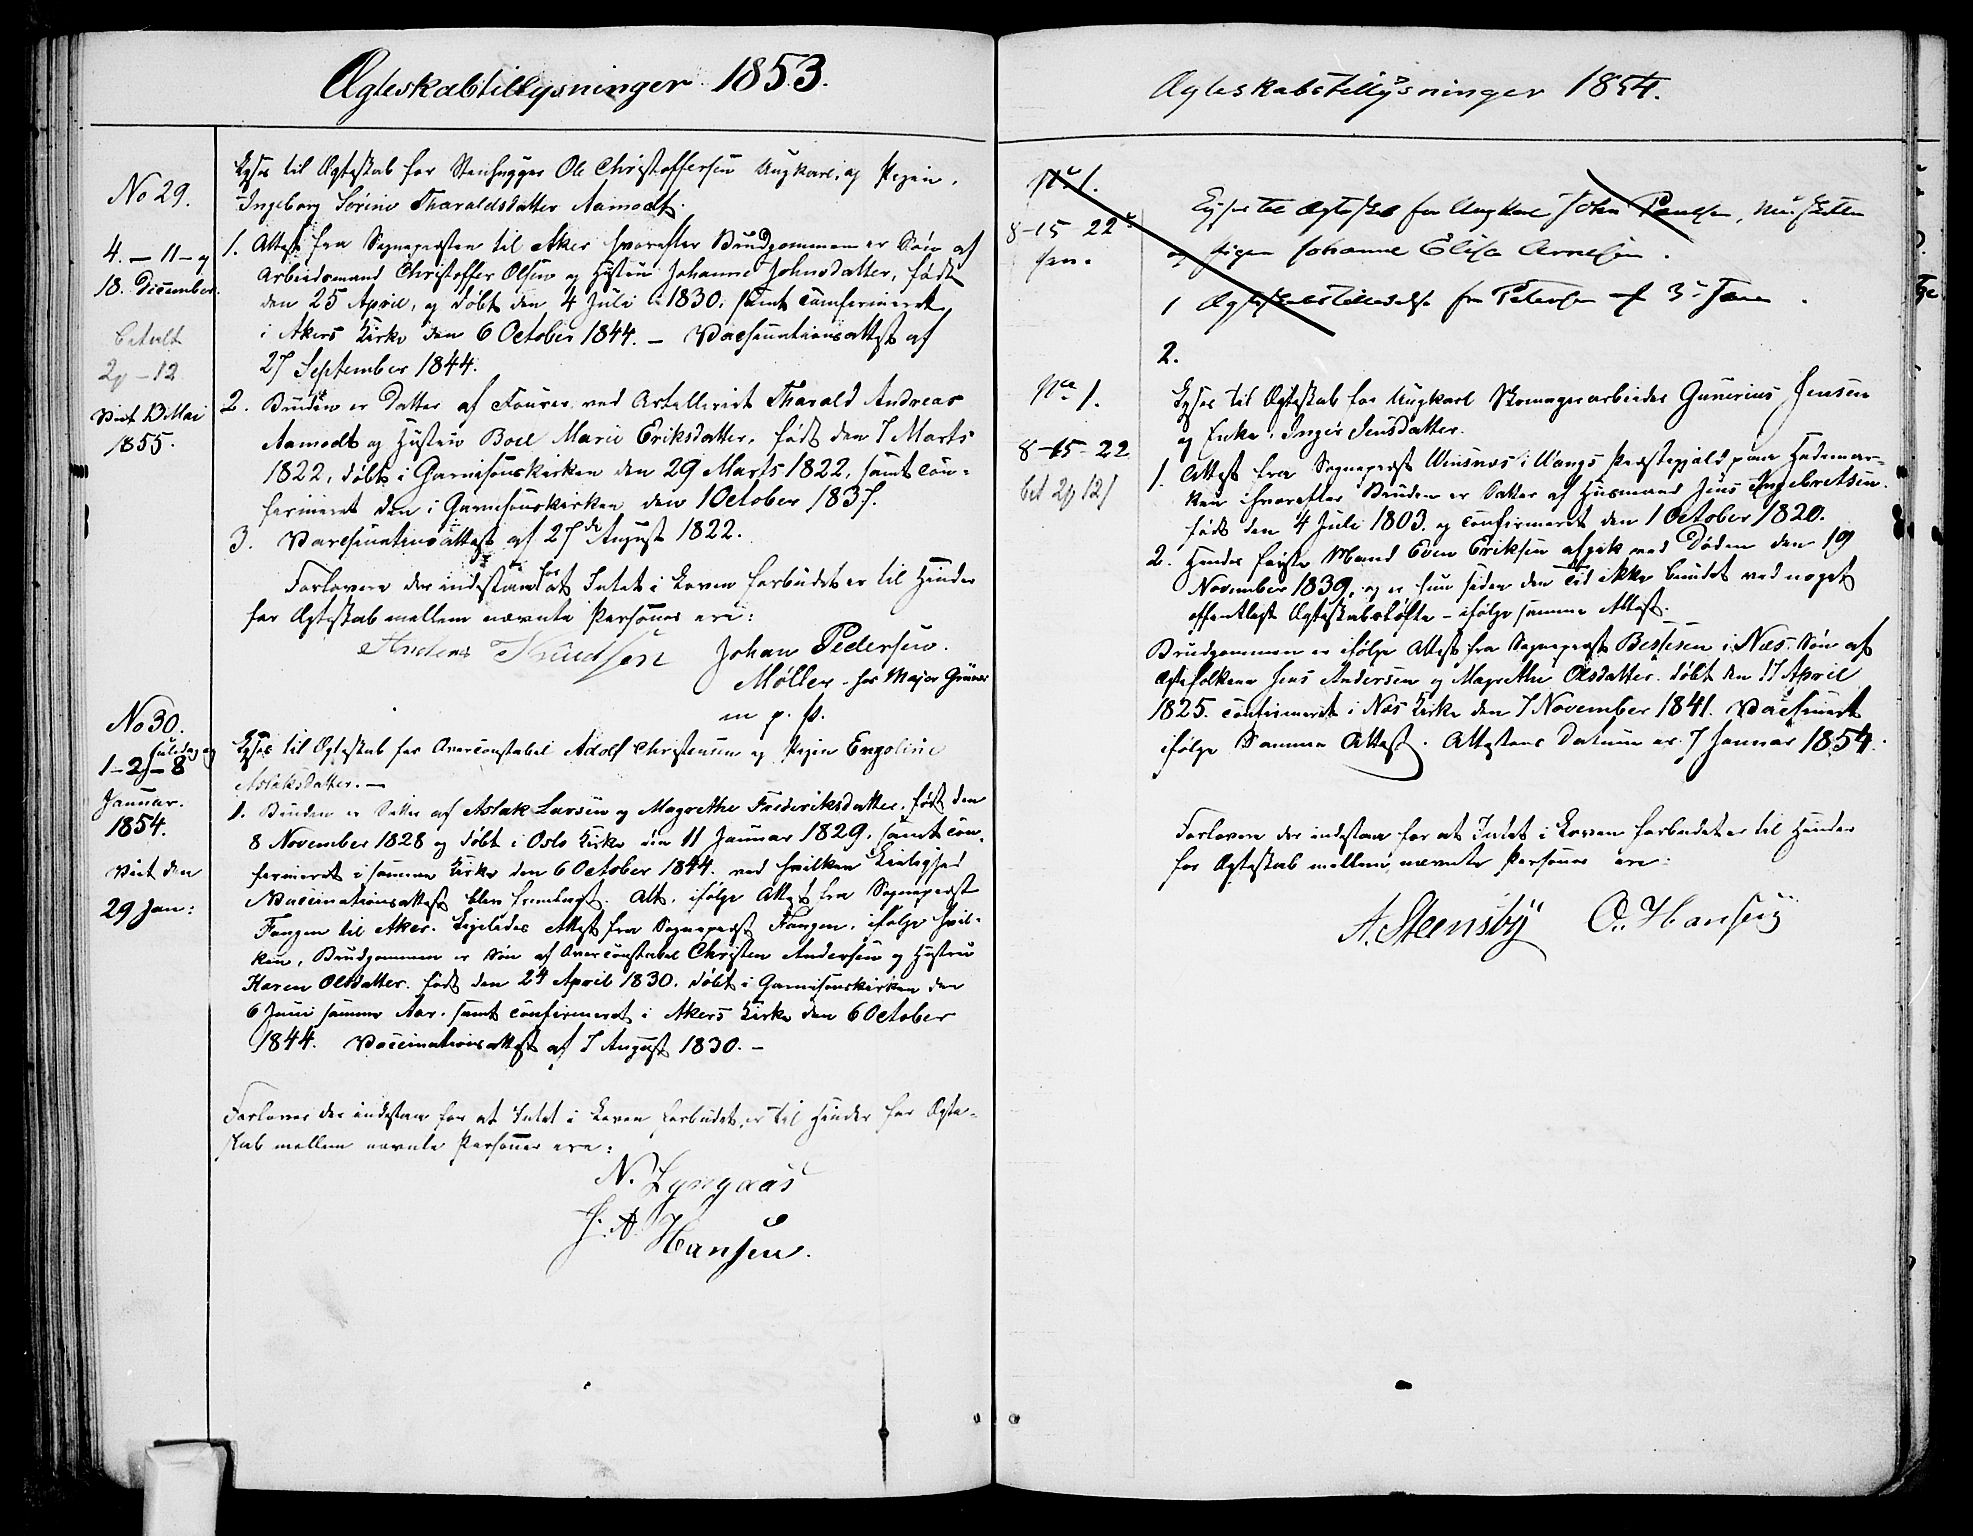 Ægteskabtillysninger 1853.
No 29.
4. – 11 – og
18. December.
betalt
2 – 12
Viet 13 Mai
1855.
Lyses til Ægteskab for Stenhugger Ole Christoffersen Ungkarl, og Pigen,
Ingeborg Sørine Tharaldsdatter Aamodt.
1. Attest fra Sognepræsten til Aker hvorefter Brudgommen er Søn af
Arbeidsmand Christoffer Olsen og Hustru Johanne Johnsdatter, født
den 25 April, og døbt den 4 Juli 1830, samt comfirmeret
i Akers Kirke den 6 October 1844. – Vaccinationsattest af
27 September 1844.
2. Bruden er Datter af Fourer ved Artelleriet Tharald Andreas
Aamodt og Hustru Boel Marie Eriksdatter, født den 7 Marts
1822, døbt i Garnisonskirken den 29 Marts 1822, samt con-
firmeret den i Garnisonskirken den 1 October 1837.
3. Vaccinationsattest af 27de August 1822.
Forlovere der indestaar for at Intet i Loven forbudet er til Hinder
for Ægteskab mellem nævnte Personer ere:
Anders Knudsen Johan Pedersen.
Møller. hos Major Grüner
m. p. P.
No 30.
Juledag og
1 – 2 – 8
Januar.
1854.
Viet den
29 Jan:
Lyses til Ægteskab for Overconstabel Adolf Christensen og Pigen Engeline
Aslaksdatter. –
1. Bruden er Datter af Aslak Larsen og Magrethe Frederiksdatter, født den
8 November 1828 og døbt i Oslo Kirke den 11 Januar 1829, samt con-
firmeret i samme Kirke den 6 October 1844. ved hvilken Leilighed
Vaccinationsattest blev fremlagt. Alt, ifølge Attest fra Sognepræst
Fangen til Aker. Ligeledes Attest fra Sognepræst Fangen, ifølge hvil-
ken, Brudgommen er Søn af Overconstabel Christen Andersen og Hustru
Karen Olsdatter. født den 24 April 1830. døbt i Garnisonskirken den
6 Juni samme Aar. samt confirmeret i Akers Kirke den 6 October
1844. Vaccinationsattest af 7 August 1830. –
Forlovere der indestaar for at Intet i Loven forbudet er til Hinder for Ægte-
skab mellem nævnte Personer ere:
N. Lyngaas
J. A. Hansen.
Ægteskabstillysninger 1854.
No 1.
8 – 15 22
Jan.
Lyses til Ægteskab for Ungkarl John Paulsen,
og Pigen Johanne Elise Arnesen.
1 Ægteskabstilladelse fra Petersen af 3 Jan.
2.
No 1.
8 – 15 – 22
bet 2 12
Lyses til Ægteskab for Ungkarl Skomagerarbeider Gunerius Jensen
og Enke, Inger Jensdatter.
1. Attest fra Sognepræst Winsnes i Vangs Præstegjæld paa Hedemar-
ken ifvorefter Bruden er Datter af Husmand Jens Ingebretsen.
født den 4 Juli 1803. og confirmeret den 1 October 1820.
2. Hendes første Mand Even Eriksen afgik ved Døden den 19
November 1839, og er hun siden den Tid ikke bundet ved noget
offentligt Ægteskabsløfte – ifølge samme Attest.
Brudgommen er ifølge Attest fra Sognepræst Bessesen i Næs. Søn af
Ægtefolkene Jens Andersen og Magrethe Olsdatter. døbt den 17 April
1825. confirmeret i Næs Kirke den 7 November 1841. Vaccineret
ifølge Samme Attest. Attestens Datum er 7 Januar 1854.
Forlovere der indestaa for at Intet i Loven forbudet er til Hinder
for Ægteskab mellem nævnte Personer ere:
A. Steensby O. Hansen